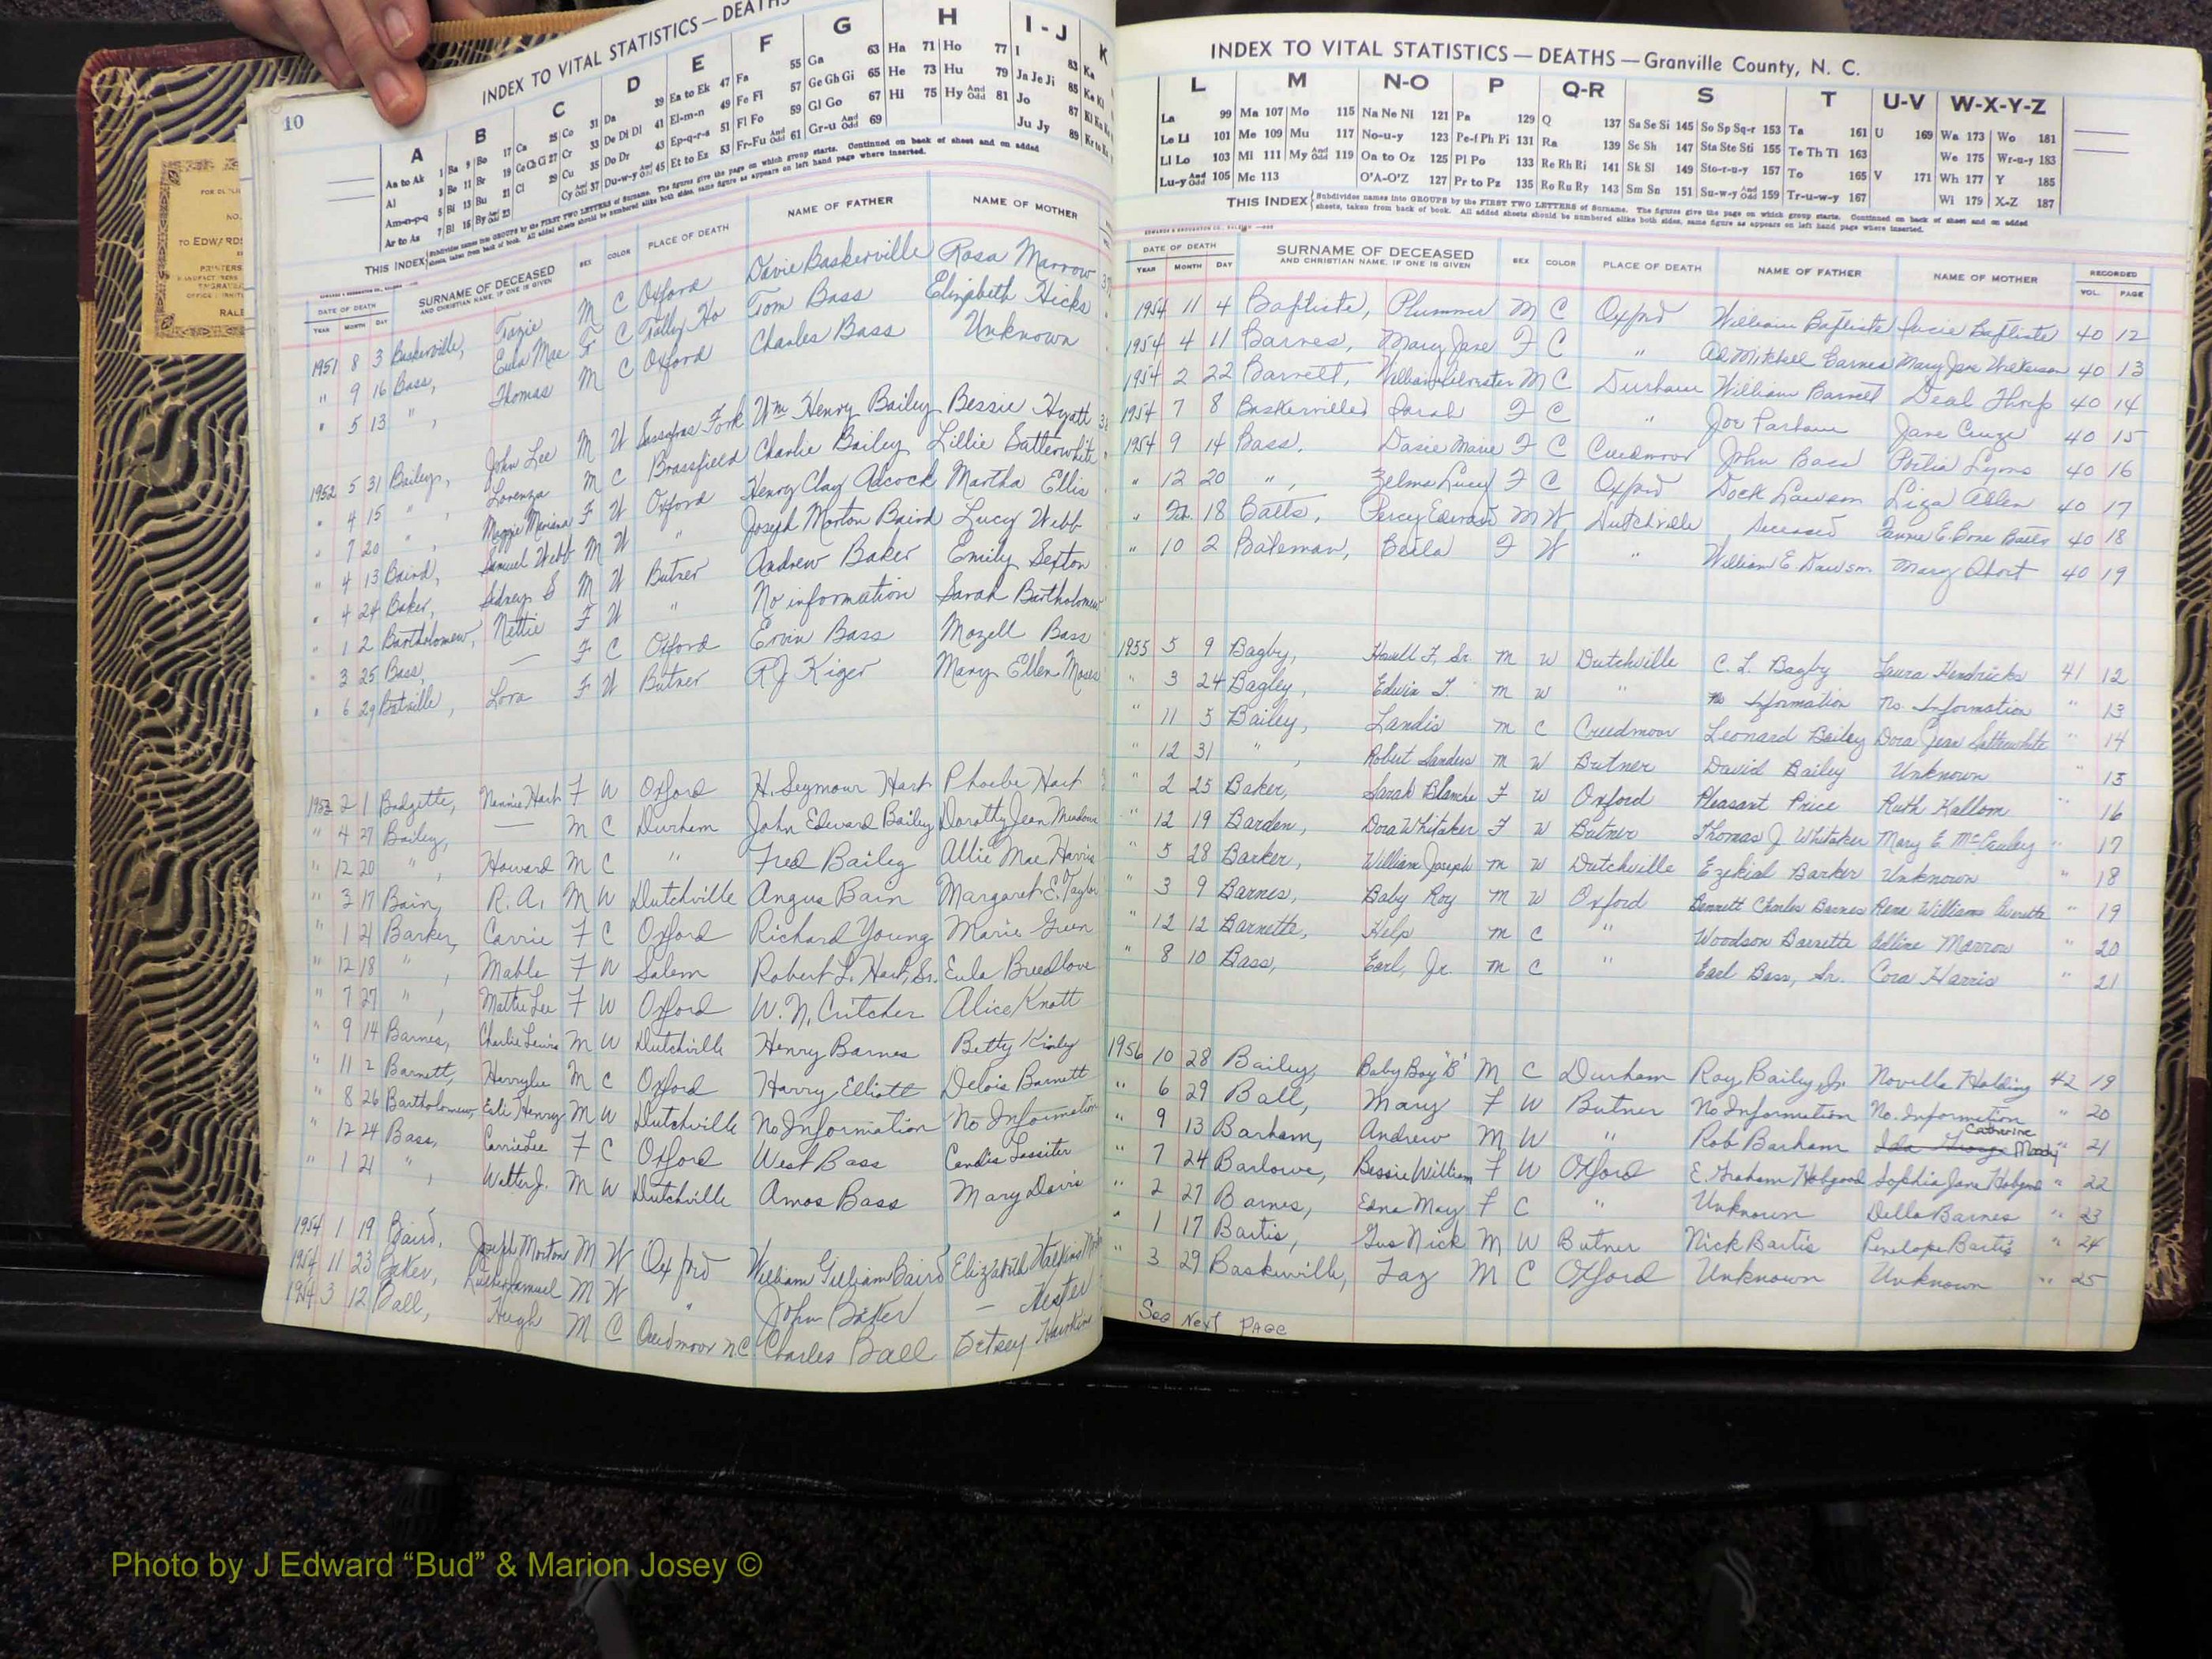 10
INDEX TO VITAL STATISTICS — DEATHS
A B C D E F G H I - J K
Aa to Ak 1 Ba 9 Bo 17 Ca 25 Co 31 Da 39 Ea to Ek 47 Fa 55 Ga 63 Ha 71 Ho 77 I 83 Ka
Al 3 Be 11 Br 19 Ce Ch Ci 27 Cr 33 De Di Dl 41 El-m-n 49 Fe Fi 57 Ge Gh Gi 65 He 73 Hu 79 Ja Je Ji 85
Am-n-p-q 5 Bi 13 Bu 21 Cl 29 Cu 35 Do Dr 43 Ep-q-r-s 51 Fl Fo 59 Gl Go 67 Hi 75 Hy And Odd 81 Jo 87
Ar to Az 7 Bl 15 By And Odd 23 Cy And Odd 37 Du-w-y And Odd 45 Et to Ez 53 Fr-Fu And Odd 61 Gr-u And Odd 69 Ju Jy 89
THIS INDEX Subdivides names into GROUPS by the FIRST TWO LETTERS of Surname. The figures give the page on which group starts. Continued on back of sheet and on added
sheets, taken from back of book. All added sheets should be numbered alike both sides, same figure as appears on left hand page where inserted.
DATE OF DEATH SURNAME OF DECEASED SEX COLOR PLACE OF DEATH NAME OF FATHER NAME OF MOTHER
YEAR MONTH DAY AND CHRISTIAN NAME, IF ONE IS GIVEN
1951 8 3 Baskerville, Tazie M C Oxford Davie Baskerville Rosa Marrow
" 9 16 Bass, Eula Mae F C Tally Ho Tom Bass Elizabeth Hicks
" 5 13 " , Thomas M C Oxford Charles Bass Unknown
1952 5 31 Bailey, John Lee M W Sassafras Fork Wm Henry Bailey Bessie Hyatt
" 4 15 " , Lorenza M C Brassfield Charlie Bailey Lillie Satterwhite
" 7 20 " , Maggie Mariana F W Oxford Henry Clay Adcock Martha Ellis
" 4 13 Baird, Samuel Webb M W " Joseph Morton Baird Lucy Webb
" 4 24 Baker, Sidney S M W Butner Andrew Baker Emily Sexton
" 1 2 Bartholomew, Nettie F W " No information Sarah Bartholomew
" 3 25 Bass, — F C Oxford Ervin Bass Mozell Bass
" 6 29 Batville, Lora F W Butner R J Kiger Mary Ellen Moses
1953 2 1 Badgette, Nannie Hart F W Oxford H. Seymour Hart Phoebe Hart
" 4 27 Bailey, — M C Durham John Edward Bailey Dorothy Jean Meadows
" 12 20 " , Howard M C " Fred Bailey Allie Mae Harris
" 3 17 Bain, R. A. M W Dutchville Angus Bain Margaret E. Taylor
" 1 21 Barker, Carrie F C Oxford Richard Young Marie Green
" 12 18 " , Mable F W Salem Robert L. Hart, Sr. Eula Breedlove
" 7 27 " , Mattie Lee F W Oxford W. N. Critcher Alice Knott
" 9 14 Barnes, Charlie Lewis M W Dutchville Henry Barnes Betty
" 11 2 Barnett, Harrylee M C Oxford Harry Elliott Delois Barnett
" 8 26 Bartholomew, Henry M W Dutchville No Information No Information
" 12 24 Bass, Carrie Lee F C Oxford West Bass Candis Lassiter
" 1 21 " , Walter J. M W Dutchville Amos Bass Mary Davis
1954 1 19 Baird, Joseph Morton M W Oxford William Gilliam Baird Elizabeth
1954 11 23 Baker, Luther Samuel M W " John Baker — Hester
1954 3 12 Ball, Hugh M C Creedmoor N.C. Charles Ball Betsey Hawkins
INDEX TO VITAL STATISTICS — DEATHS — Granville County, N. C.
L M N-O P Q-R S T U-V W-X-Y-Z
La 99 Ma 107 Mo 115 Na Ne Ni 121 Pa 129 Q 137 Sa Se Si 145 So Sp Sq-r 153 Ta 161 U 169 Wa 173 Wo 181
Le Li 101 Me 109 Mu 117 No-u-y 123 Pe-f Ph Pi 131 Ra 139 Sc Sh 147 Sta Ste Sti 155 Te Th Ti 163 We 175 Wr-u-y 183
Ll Lo 103 Mi 111 My And Odd 119 On to Oz 125 Pl Po 133 Re Rh Ri 141 Sk Sl 149 Sto-r-u-y 157 To 165 V 171 Wh 177 Y 185
Lu-y And Odd 105 Mc 113 O'A-O'Z 127 Pr to Pz 135 Ro Ru Ry 143 Sm Sn 151 Su-w-y And Odd 159 Tr-u-w-y 167 Wi 179 X-Z 187
THIS INDEX Subdivides names into GROUPS by the FIRST TWO LETTERS of Surname. The figures give the page on which group starts. Continued on back of sheet and on added
sheets, taken from back of book. All added sheets should be numbered alike both sides, same figure as appears on left hand page where inserted.
DATE OF DEATH SURNAME OF DECEASED SEX COLOR PLACE OF DEATH NAME OF FATHER NAME OF MOTHER RECORDED
YEAR MONTH DAY AND CHRISTIAN NAME, IF ONE IS GIVEN VOL. PAGE
1954 11 4 Baptiste, Plummer M C Oxford William Baptiste Lucie Baptiste 40 12
1954 4 11 Barnes, Mary Jane F C " Mitchell Barnes Mary Jane Wilkerson 40 13
1954 2 22 Barnett, William Silvester M C Durham William Barnett Deal Thorp 40 14
1954 7 8 Baskerville, Sarah F C " Joe Parham Jane Cruze 40 15
1954 9 14 Bass, Dasie Marie F C Creedmoor John Bass Portia Lyons 40 16
" 12 20 " , Zelma Lucy F C Oxford Dock Lawson Liza Allen 40 17
" 18 Batts, Percy Edward M W Dutchville Deceased Fannie E. Bone Batts 40 18
" 10 2 Bateman, Beila F W " William E. Dawson Mary Short 40 19
1955 5 9 Bagby, Howell F, Sr. M W Dutchville C. L. Bagby Laura Hendricks 41 12
" 3 24 Bagley, Edwin T. M W " No Information No. Information " 13
" 11 5 Bailey, Landis M C Creedmoor Leonard Bailey Dora Jean Satterwhite " 14
" 12 31 " , Robert Sanders M W Butner David Bailey Unknown " 15
" 2 25 Baker, Sarah Blanche F W Oxford Pleasant Price Ruth Kallom " 16
" 12 19 Barden, Dora Whitaker F W Butner Thomas J. Whitaker Mary E. McCauley " 17
" 5 28 Barker, William Joseph M W Dutchville Ezekial Barker Unknown " 18
" 3 9 Barnes, Baby Roy M W Oxford Bennett Charles Barnes Rena Williams Averette " 19
" 12 12 Barnette, Help M C " Woodson Barnette Adline Marrow " 20
" 8 10 Bass, Earl, Jr. M C " Earl Bass, Sr. Cora Harris " 21
1956 10 28 Bailey, Baby Boy "B" M C Durham Roy Bailey Jr. Novella Holding 42 19
" 6 29 Ball, Mary F W Butner No Information No. Information " 20
" 9 13 Barham, Andrew M W " Rob Barham Catherine Moody " 21
" 7 24 Barlowe, Bessie William F W Oxford E. Graham Hobgood Sophia Jane Hobgood " 22
" 2 27 Barnes, Edna May F C " Unknown Della Barnes " 23
" 1 17 Bartis, Gus Nick M W Butner Nick Bartis Penelope Bartis " 24
" 3 29 Baskerville, Taz M C Oxford Unknown Unknown " 25
See Next PAGE
Photo by J Edward “Bud” & Marion Josey ©